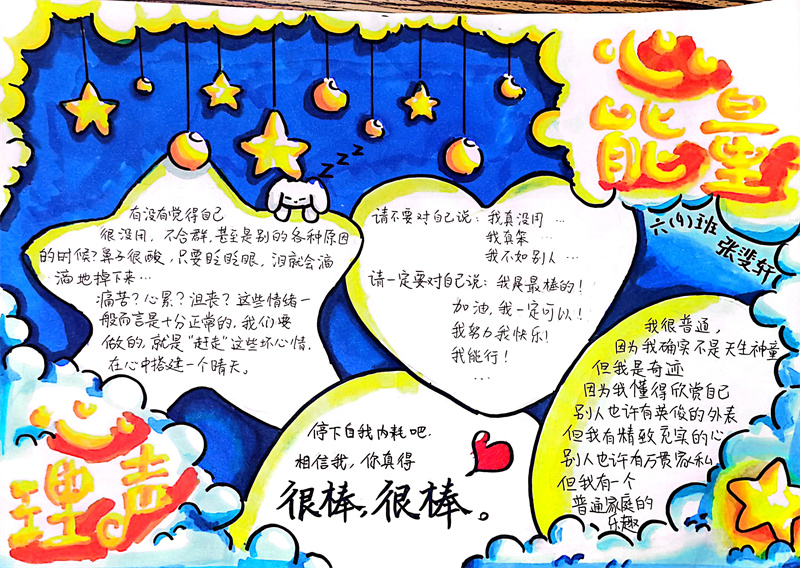 心
能量
六(4)班
张斐轩
有没有觉得自己
很没用,不合群,甚至是别的各种原因
的时候?鼻子很酸,只要眨眨眼,泪就会滴
滴地掉下来…
痛苦?心累?沮丧?这些情绪一
般而言是十分正常的,我们要
做的,就是“赶走”这些坏心情,
在心中搭建一个晴天。
zzzz
请不要对自己说:我真没用…
我真笨…
我不如别人…
请一定要对自己说:我是最棒的!
加油,我一定可以!
我努力我快乐!
我能行!
…
我很普通,
因为我确实不是天生神童
但我是奇迹
因为我懂得欣赏自己
别人也许有英俊的外表
但我有精致充实的心
别人也许有万贯家私
但我有一个
普通家庭的
乐趣
停下自我内耗吧.
相信我,你真得
很棒,很棒。
心
理声